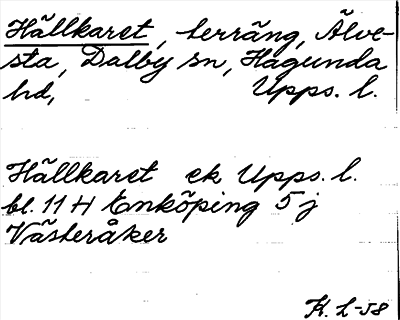 Hällkaret, terräng, Älve-
sta, Dalby sn, Hagunda
hd, Upps. l.
Hällkaret ek Upps. l.
bl. 11 H Enköping 5 j
Västeråker
K. L-58